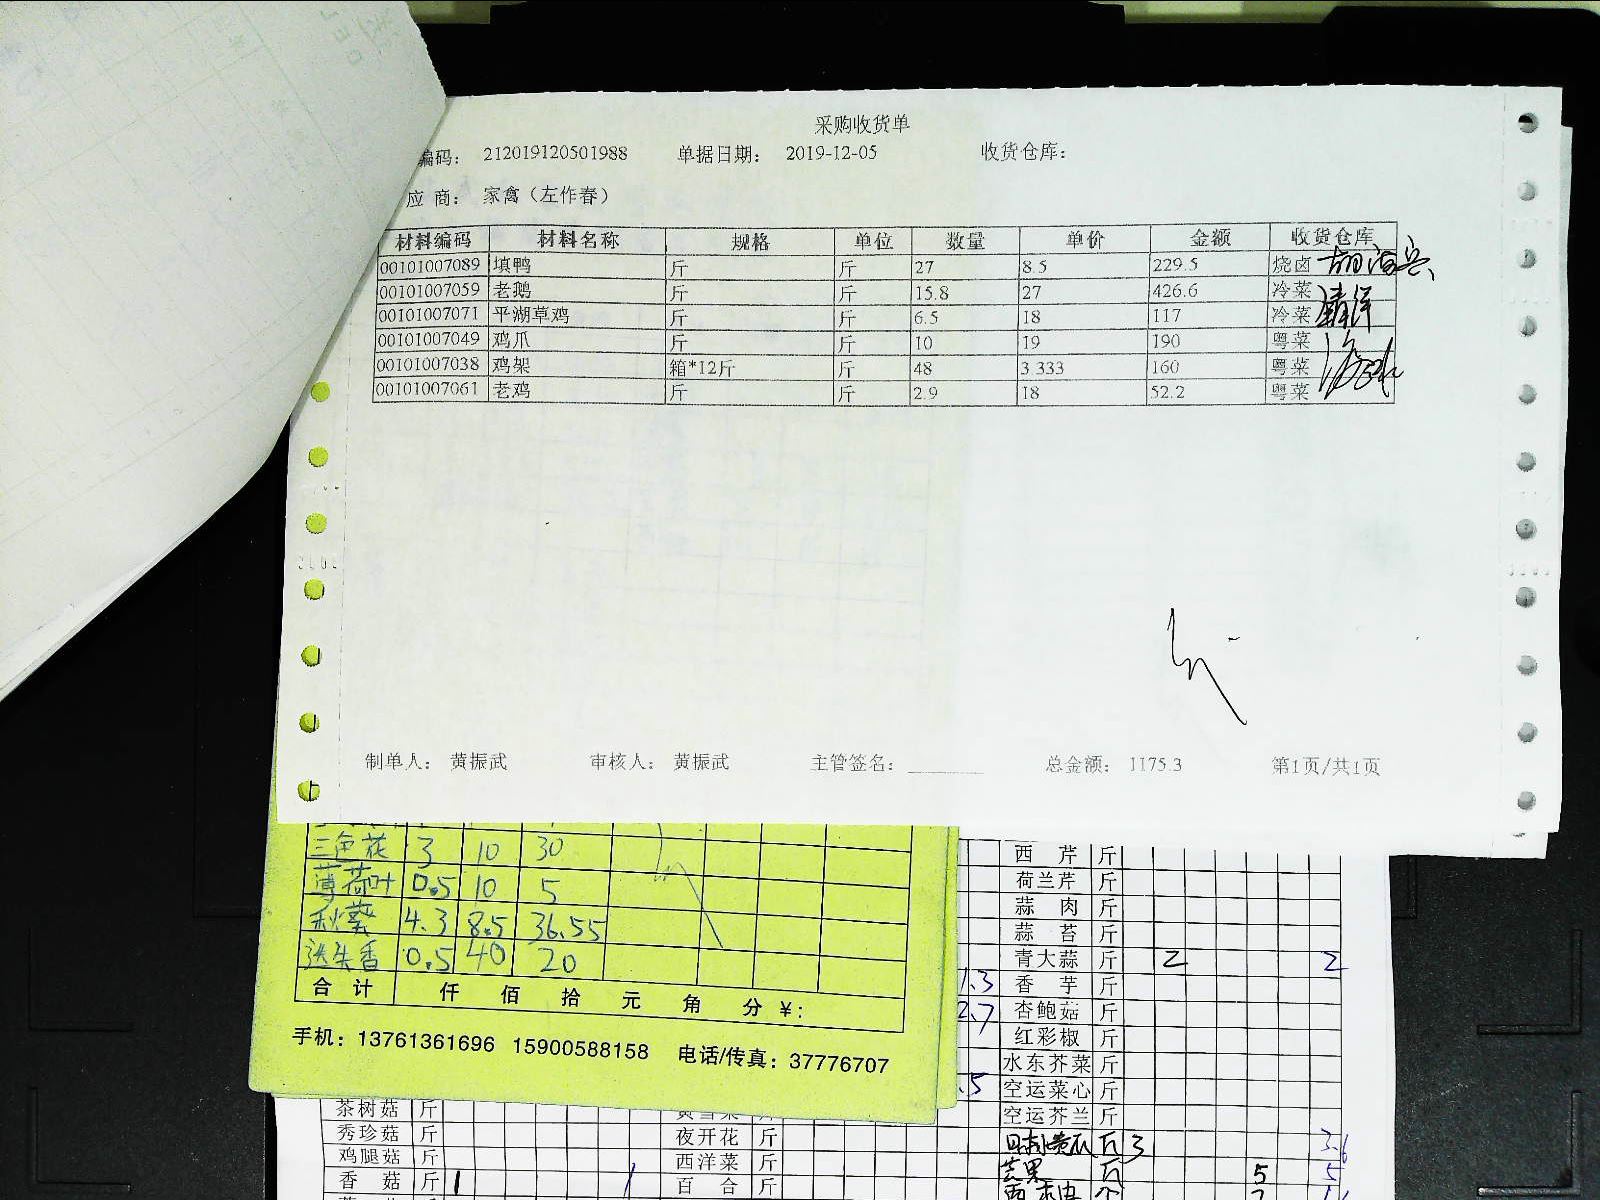 采购收货单
编码： 212019120501988 单据日期： 2019-12-05 收货仓库：
应 商： 家禽（左作春）
材料编码 材料名称 规格 单位 数量 单价 金额 收货仓库
00101007089 填鸭 斤 斤 27 8.5 229.5 烧卤
00101007059 老鹅 斤 斤 15.8 27 426.6 冷菜
00101007071 平湖草鸡 斤 斤 6.5 18 117 冷菜
00101007049 鸡爪 斤 斤 10 19 190 粤菜
00101007038 鸡架 箱*12斤 斤 48 3.333 160 粤菜
00101007061 老鸡 斤 斤 2.9 18 52.2 粤菜
制单人： 黄振武 审核人： 黄振武 主管签名： 总金额： 1175.3 第1页/共1页
三色花 3 10 30
薄荷叶 0.5 10 5
秋葵 4.3 8.5 36.55
迷失香 0.5 40 20
合 计 仟 佰 拾 元 角 分 ¥：
手机：13761361696 15900588158 电话/传真：37776707
西 芹 斤
荷兰芹 斤
蒜 肉 斤
蒜 苔 斤
青大蒜 斤 2 2
1.3 香 芋 斤
2.7 杏鲍菇 斤
红彩椒 斤
水东芥菜 斤
.5 空运菜心 斤
空运芥兰 斤
茶树菇 斤
秀珍菇 斤 夜开花 斤 斤 3 3.6
鸡腿菇 斤 西洋菜 斤 芒果 斤 5 5
香 菇 斤 1 1 百 合 斤